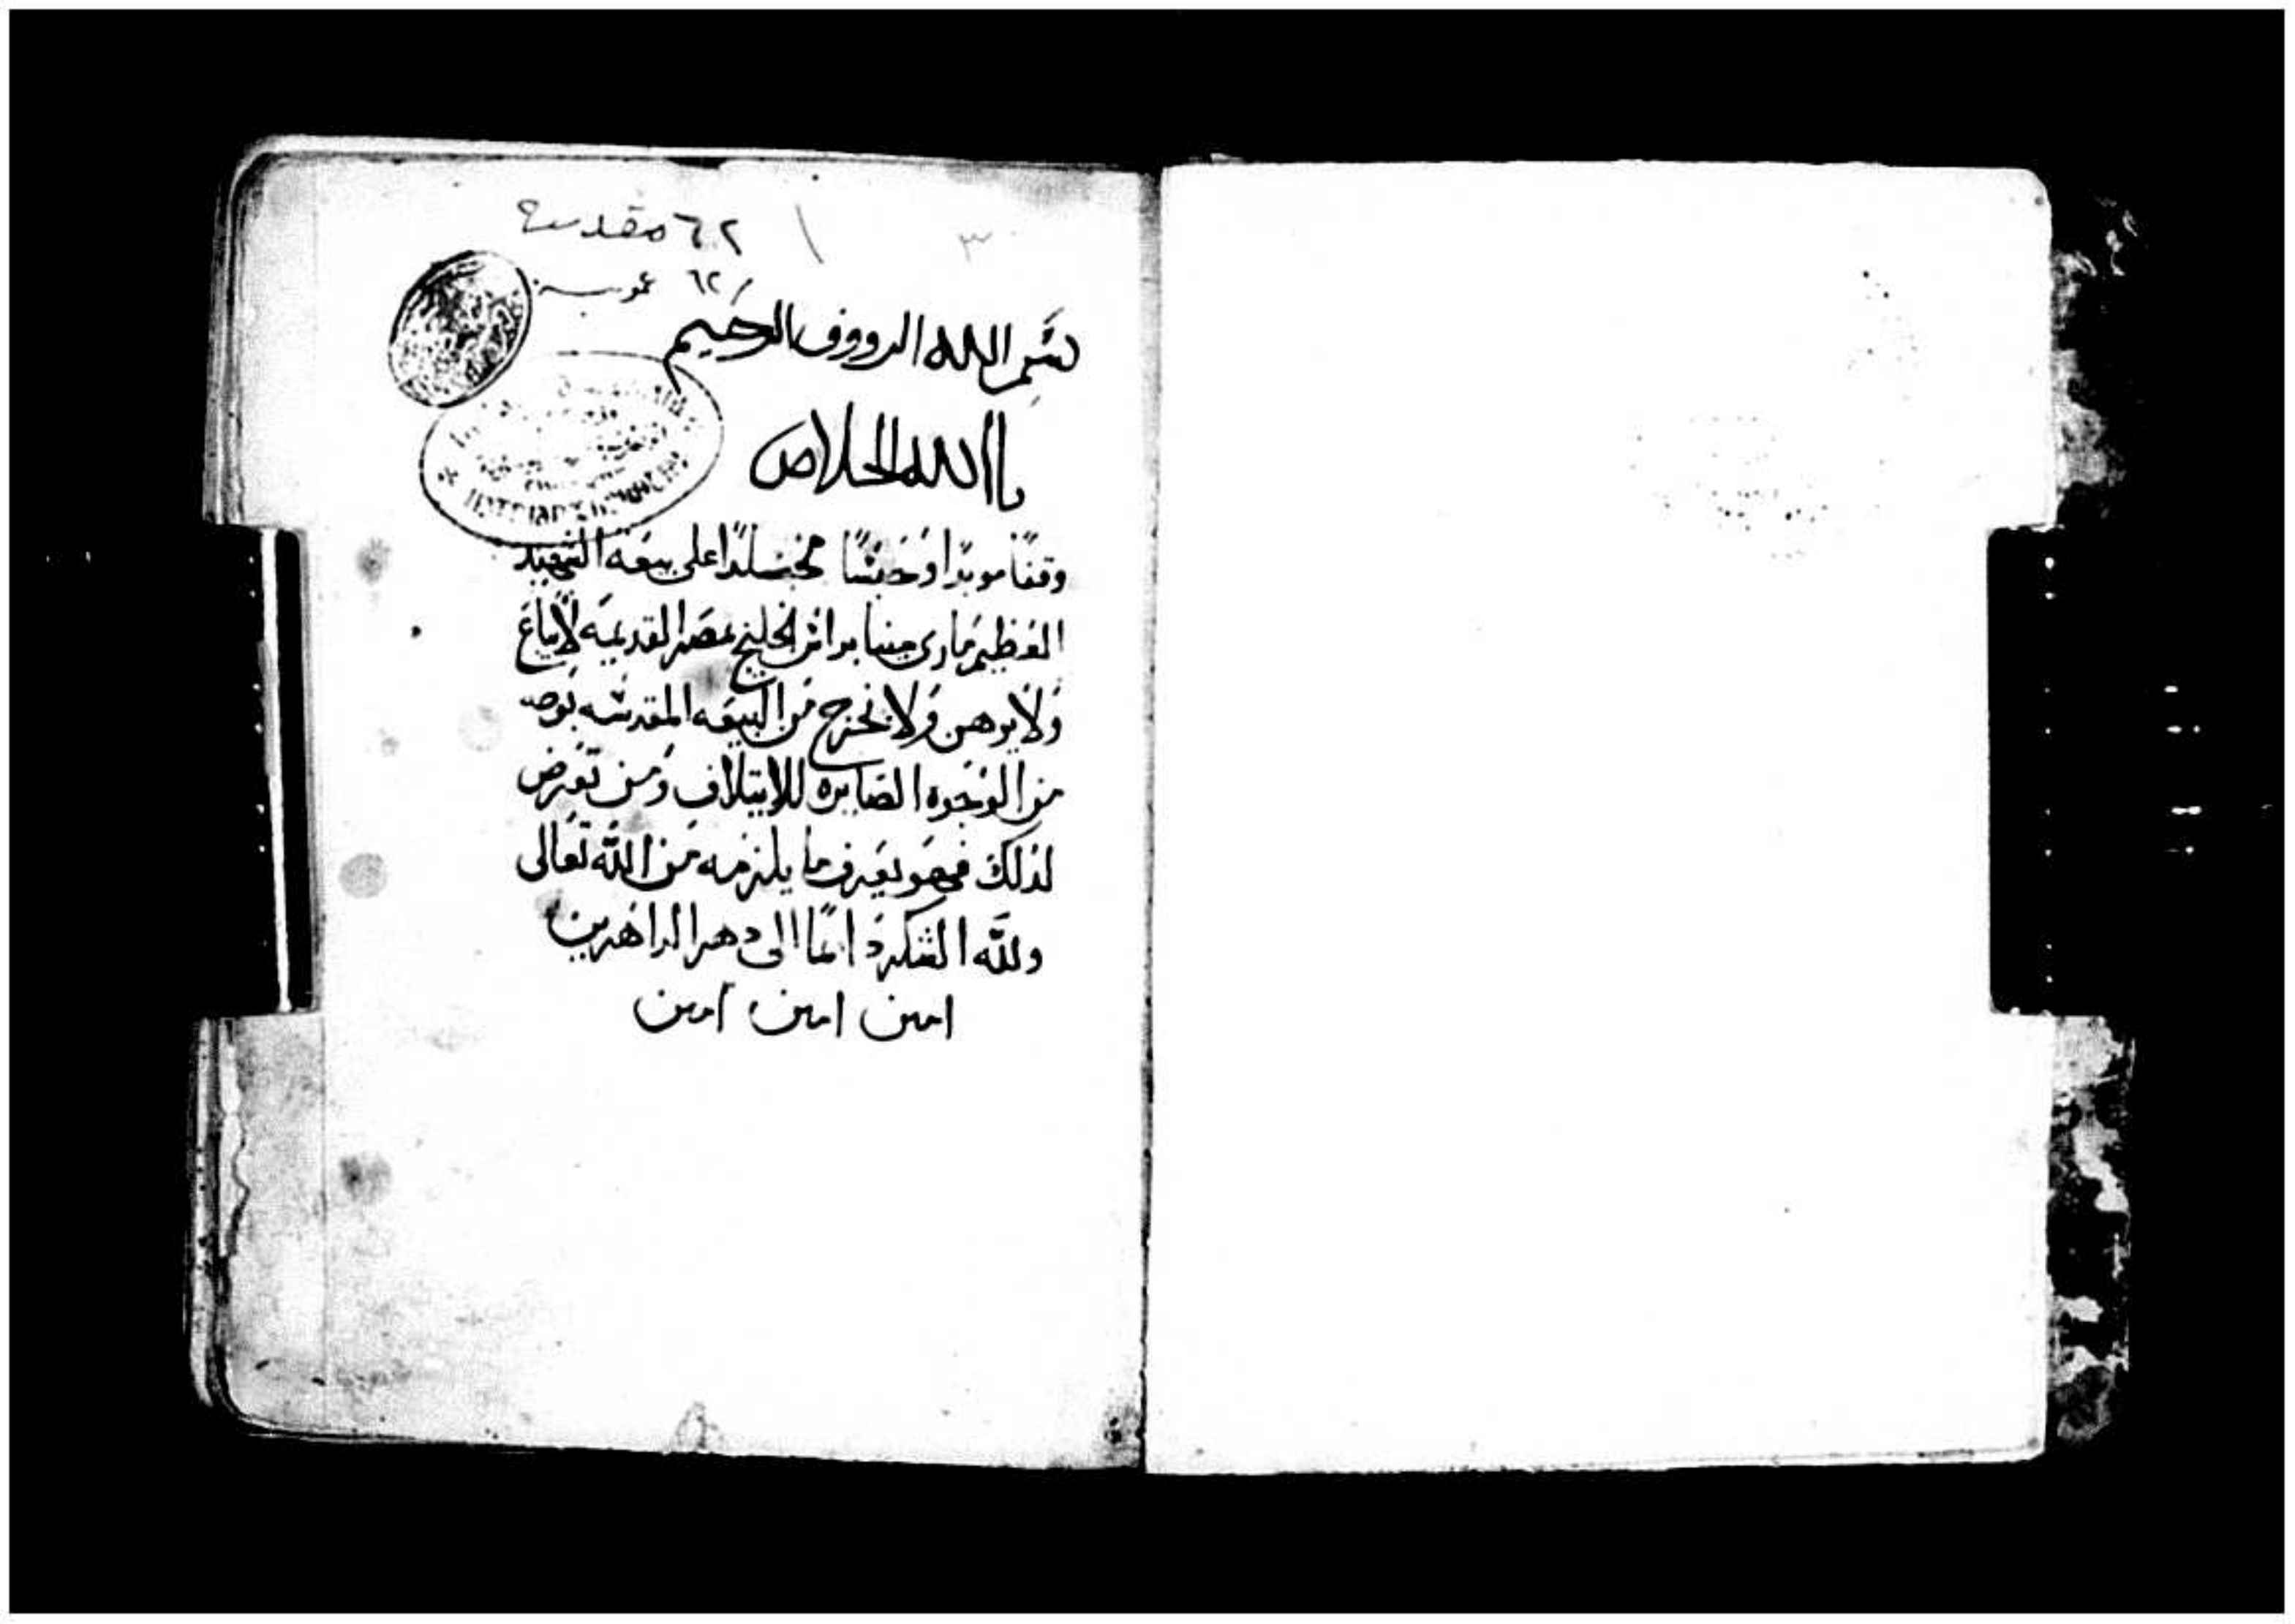 ٦٢ مقدسة
٣
٦٢ عمومية
بسم الله الرووف الرحيم
يا الله الخلاص
وقفًا موبدًا وحبسًا مخلدًا على بيعه الشهيد
العظيم ماري مينا براس الخليج بمصر القديمه لايباع
ولا يرهن ولا يخرج من البيعه المقدسه بوجه
من الوجوه الصايره للايتلاف ومن تعرض
لذلك فهو يعرف ما يلزمه من الله تعالى
ولله الشكر دايمًا الى دهر الداهرين
امين امين امين